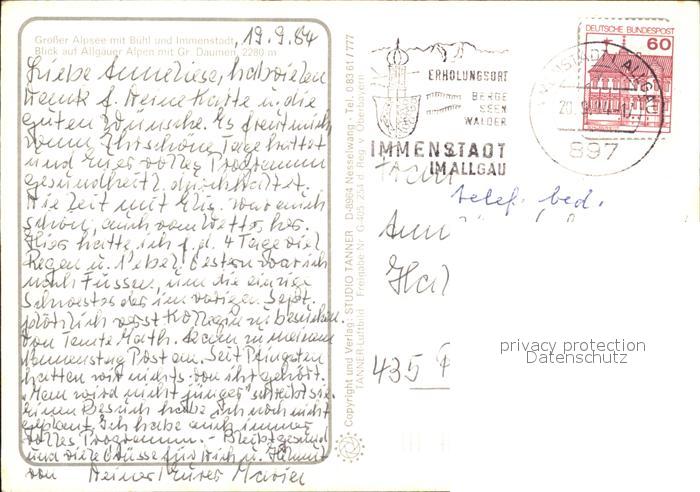 Großer Alpsee mit Bühl und Immenstadt, 19.9.84
Blick auf Allgäuer Alpen mit Gr. Daumen, 2280 m
Liebe Anneliese, hab vielen
Dank f. Deine Karte u. die
guten Wünsche. Es freut mich
wenn Ihr schöne Tage hattet
und Euer volles Programm
gesundheitl. durchhaltet.
Die Zeit mit Elis. war auch
schön, auch vom Wetter her.
Hier hatte ich f. d. 4 Tage viel
Regen u. Nebel. Gestern war ich
nach Füssen, um die einzige
Schwester der im vorigen Sept.
plötzlich verst. Kollegin zu besuchen.
Von Tante Math. kam zu meinem
Namenstag Post an. Seit Pfingsten
hatten wir nichts von ihr gehört.
"Man wird nicht jünger" schreibt sie.
einen Besuch habe ich noch nicht
geplant. Ich habe auch immer
volles Programm. - Bleibt gesund
und viele Grüße für Dich u. Helmut
von Deiner/Eurer Maria
Copyright und Verlag: STUDIO TANNER D-8964 Nesselwang - Tel. 0 83 61 / 777
TANNER-Luftbild Freigabe Nr. G 40 S, 234 d. Reg. v. Oberbayern
ERHOLUNGSORT
BERGE
SEEN
WÄLDER
IMMENSTADT
IM ALLGÄU
DEUTSCHE BUNDESPOST
60
897
telef. bed.
435
privacy protection
Datenschutz